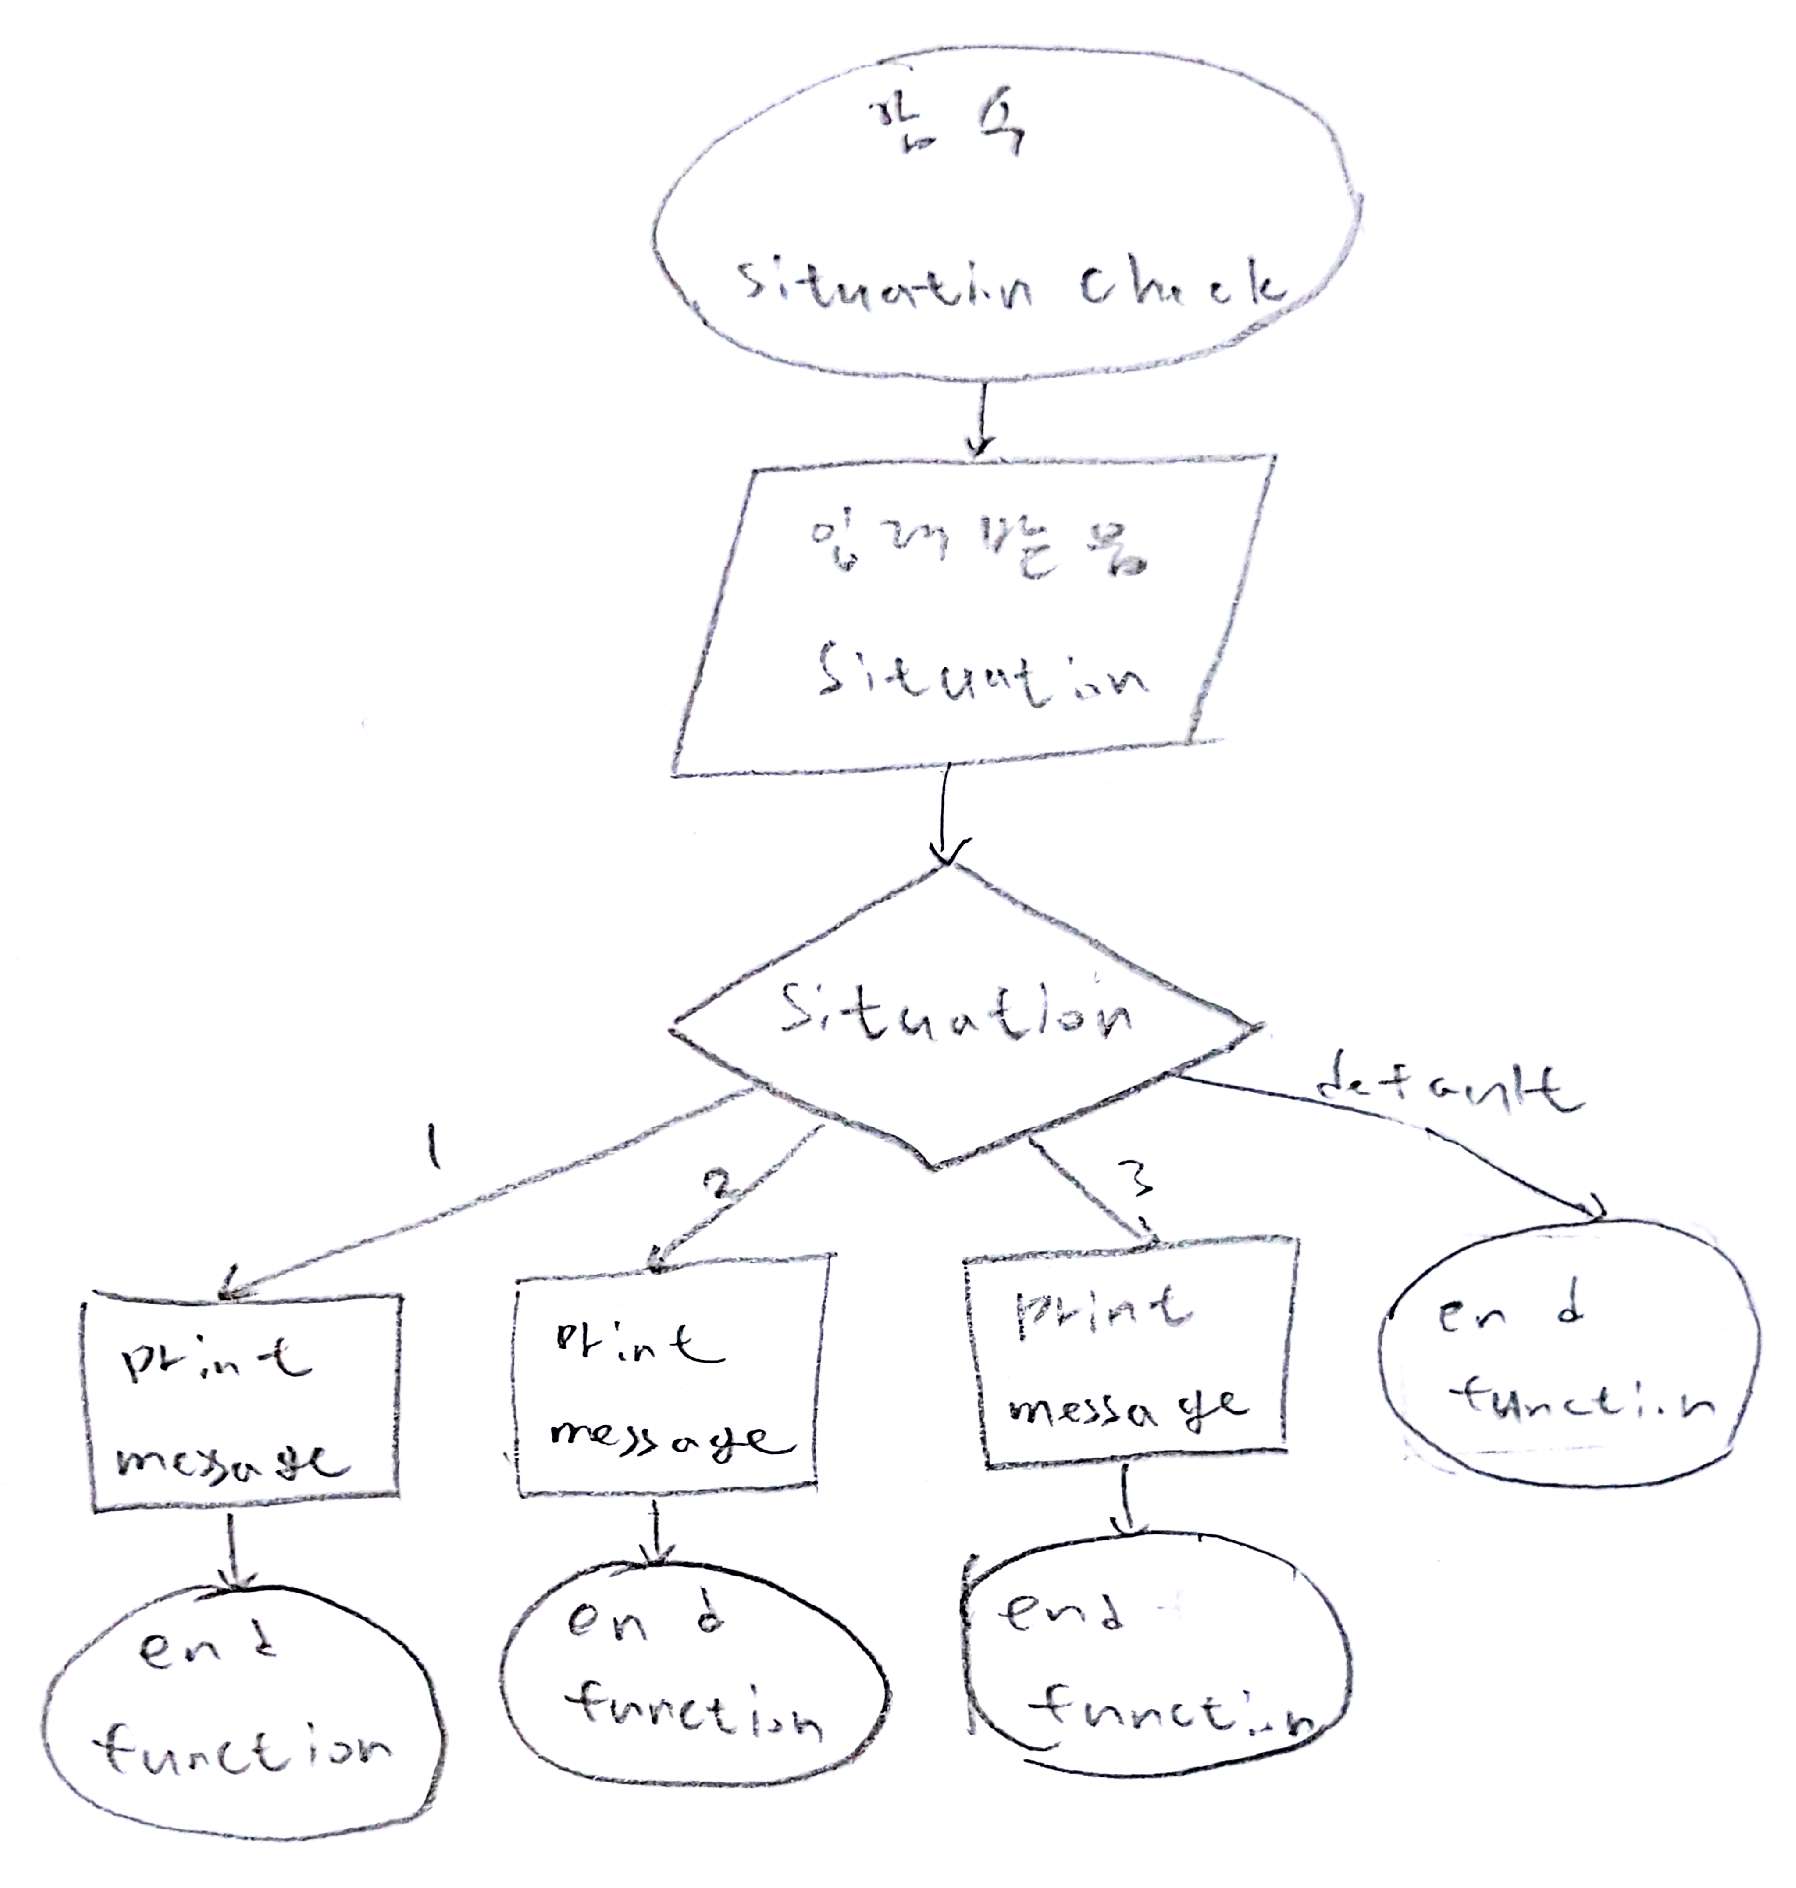 함수
situation check
입력받음
Situation
Situation
default
1
2
3
print
message
print
message
print
message
end
function
end
function
end
function
end
function